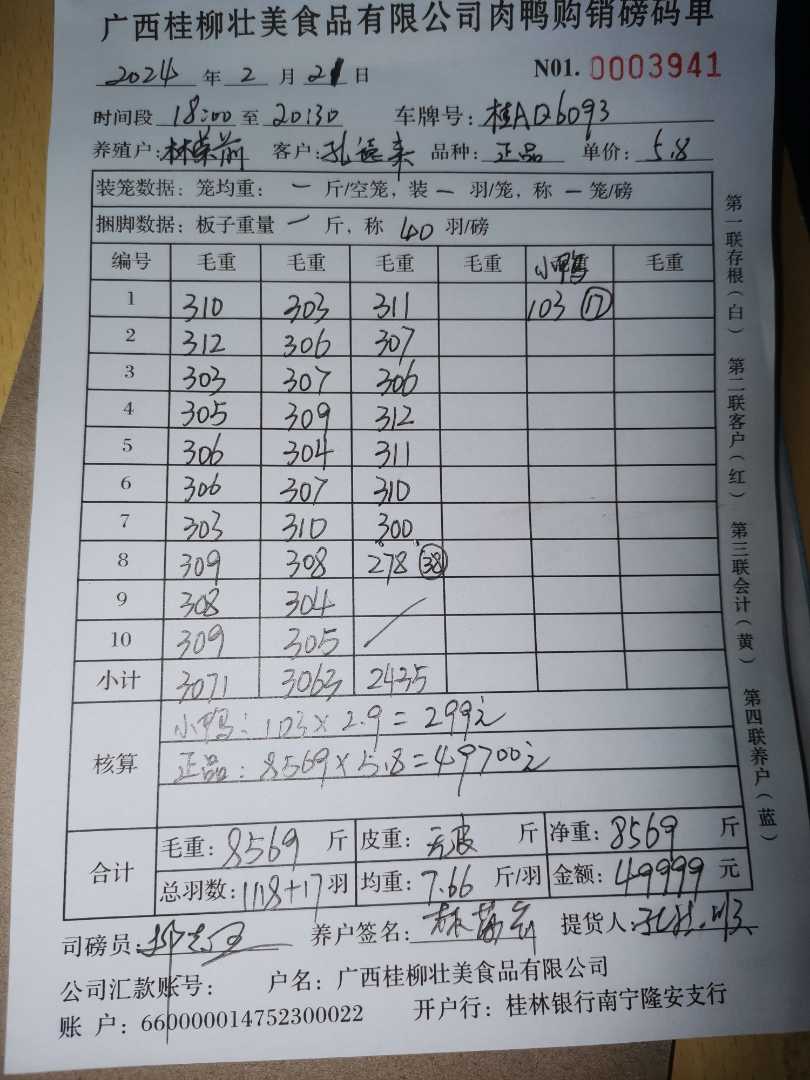 广西桂柳壮美食品有限公司肉鸭购销磅码单
2024 年 2 月 21 日 N01. 0003941
时间段 18:00 至 20:30 车牌号: 桂AQ6093
养殖户: 林荣前 客户: 品种: 正品 单价: 5.8
装笼数据: 笼均重: 一 斤/空笼, 装 一 羽/笼, 称 一 笼/磅
捆脚数据: 板子重量 一 斤, 称 40 羽/磅
编号 毛重 毛重 毛重 毛重 小鸭 毛重
1 310 303 311 103 17
2 312 306 307
3 303 307 306
4 305 309 312
5 306 304 311
6 306 307 310
7 303 310 300
8 309 308 278 38
9 308 304
10 309 305
小计 3071 3063 2435
核算
小鸭: 103×2.9=299元
正品: 8569×5.8=49700元
合计
毛重: 8569 斤 皮重: 无皮 斤 净重: 8569 斤
总羽数: 1118+17 羽 均重: 7.66 斤/羽 金额: 49999 元
司磅员: 养户签名: 提货人:
公司汇款账号: 户名: 广西桂柳壮美食品有限公司
账 户: 660000014752300022 开户行: 桂林银行南宁隆安支行
第一联存根(白) 第二联客户(红) 第三联会计(黄) 第四联养户(蓝)